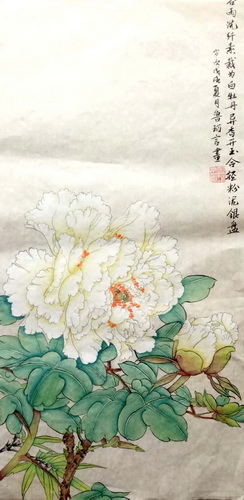 谷雨洗纤素裁为白牡丹异香开玉合轻粉泥银盘
岁次戊戌夏月鲁韬言画